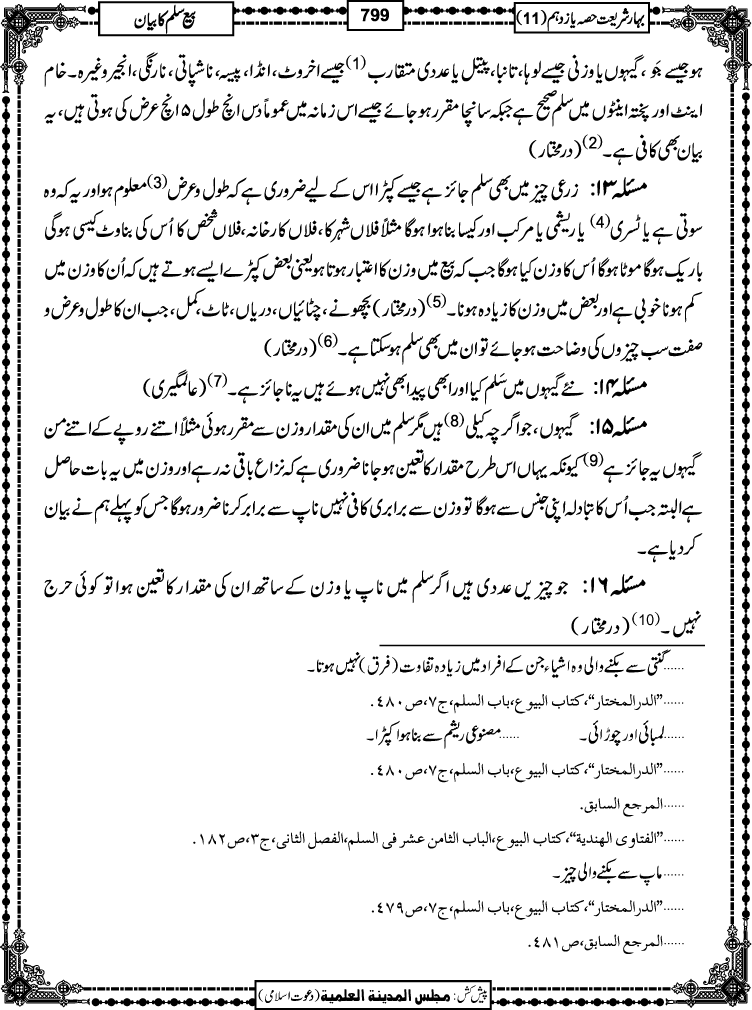 بہارِ شریعت حصہ یازدہم (11)
799
بیع سلم کا بیان
ہو جیسے جَو ، گیہوں یا وزنی جیسے لوہا، تانبا، پیتل یا عددی متقارب(1) جیسے اخروٹ، انڈا، پیسہ، ناشپاتی، نارنگی، انجیر وغیرہ۔ خام
اینٹ اور پختہ اینٹوں میں سلم صحیح ہے جبکہ سانچا مقرر ہو جائے جیسے اس زمانہ میں عموماً دس انچ طول ۵ انچ عرض کی ہوتی ہیں، یہ
بیان بھی کافی ہے۔(2) (درمختار)
مسئلہ ۱۳: زرعی چیز میں بھی سلم جائز ہے جیسے کپڑا اس کے لیے ضروری ہے کہ طول و عرض(3) معلوم ہو اور یہ کہ وہ
سوتی ہے یا ٹسری(4) یا ریشمی یا مرکب اور کیسا بنا ہوا ہوگا مثلاً فلاں شہر کا، فلاں کارخانہ، فلاں شخص کا اُس کی بناوٹ کیسی ہوگی
باریک ہوگا موٹا ہوگا اُس کا وزن کیا ہوگا جب کہ بیع میں وزن کا اعتبار ہوتا ہو یعنی بعض کپڑے ایسے ہوتے ہیں کہ اُن کا وزن میں
کم ہونا خوبی ہے اور بعض میں وزن کا زیادہ ہونا۔(5) (درمختار) بچھونے، چٹائیاں، دریاں، ٹاٹ، کمل، جب ان کا طول و عرض و
صفت سب چیزوں کی وضاحت ہو جائے تو ان میں بھی سلم ہوسکتا ہے۔(6) (درمختار)
مسئلہ ۱۴: نئے گیہوں میں سَلم کیا اور ابھی پیدا بھی نہیں ہوئے ہیں یہ ناجائز ہے۔(7) (عالمگیری)
مسئلہ ۱۵: گیہوں، جو اگرچہ کیلی(8) ہیں مگر سلم میں ان کی مقدار وزن سے مقرر ہوئی مثلاً اتنے روپے کے اتنے من
گیہوں یہ جائز ہے(9) کیونکہ یہاں اس طرح مقدار کا تعین ہو جانا ضروری ہے کہ نزاع باقی نہ رہے اور وزن میں یہ بات حاصل
ہے البتہ جب اُس کا تبادلہ اپنی جنس سے ہوگا تو وزن سے برابری کافی نہیں ناپ سے برابر کرنا ضرور ہوگا جس کو پہلے ہم نے بیان
کر دیا ہے۔
مسئلہ ۱۶: جو چیزیں عددی ہیں اگر سلم میں ناپ یا وزن کے ساتھ ان کی مقدار کا تعین ہوا تو کوئی حرج
نہیں۔(10) (درمختار)
......گنتی سے بکنے والی وہ اشیاء جن کے افراد میں زیادہ تفاوت (فرق) نہیں ہوتا۔
......”الدرالمختار“، کتاب البیوع، باب السلم، ج۷، ص۴۸۰.
......لمبائی اور چوڑائی۔ ......مصنوعی ریشم سے بنا ہوا کپڑا۔
......”الدرالمختار“، کتاب البیوع، باب السلم، ج۷، ص۴۸۰.
......المرجع السابق.
......”الفتاوی الهندیة“، کتاب البیوع، الباب الثامن عشر فی السلم، الفصل الثانی، ج۳، ص۱۸۲.
......ماپ سے بکنے والی چیز۔
......”الدرالمختار“، کتاب البیوع، باب السلم، ج۷، ص۴۷۹.
......المرجع السابق، ص۴۸۱.
پیش کش: مجلس المدینة العلمیة (دعوت اسلامی)